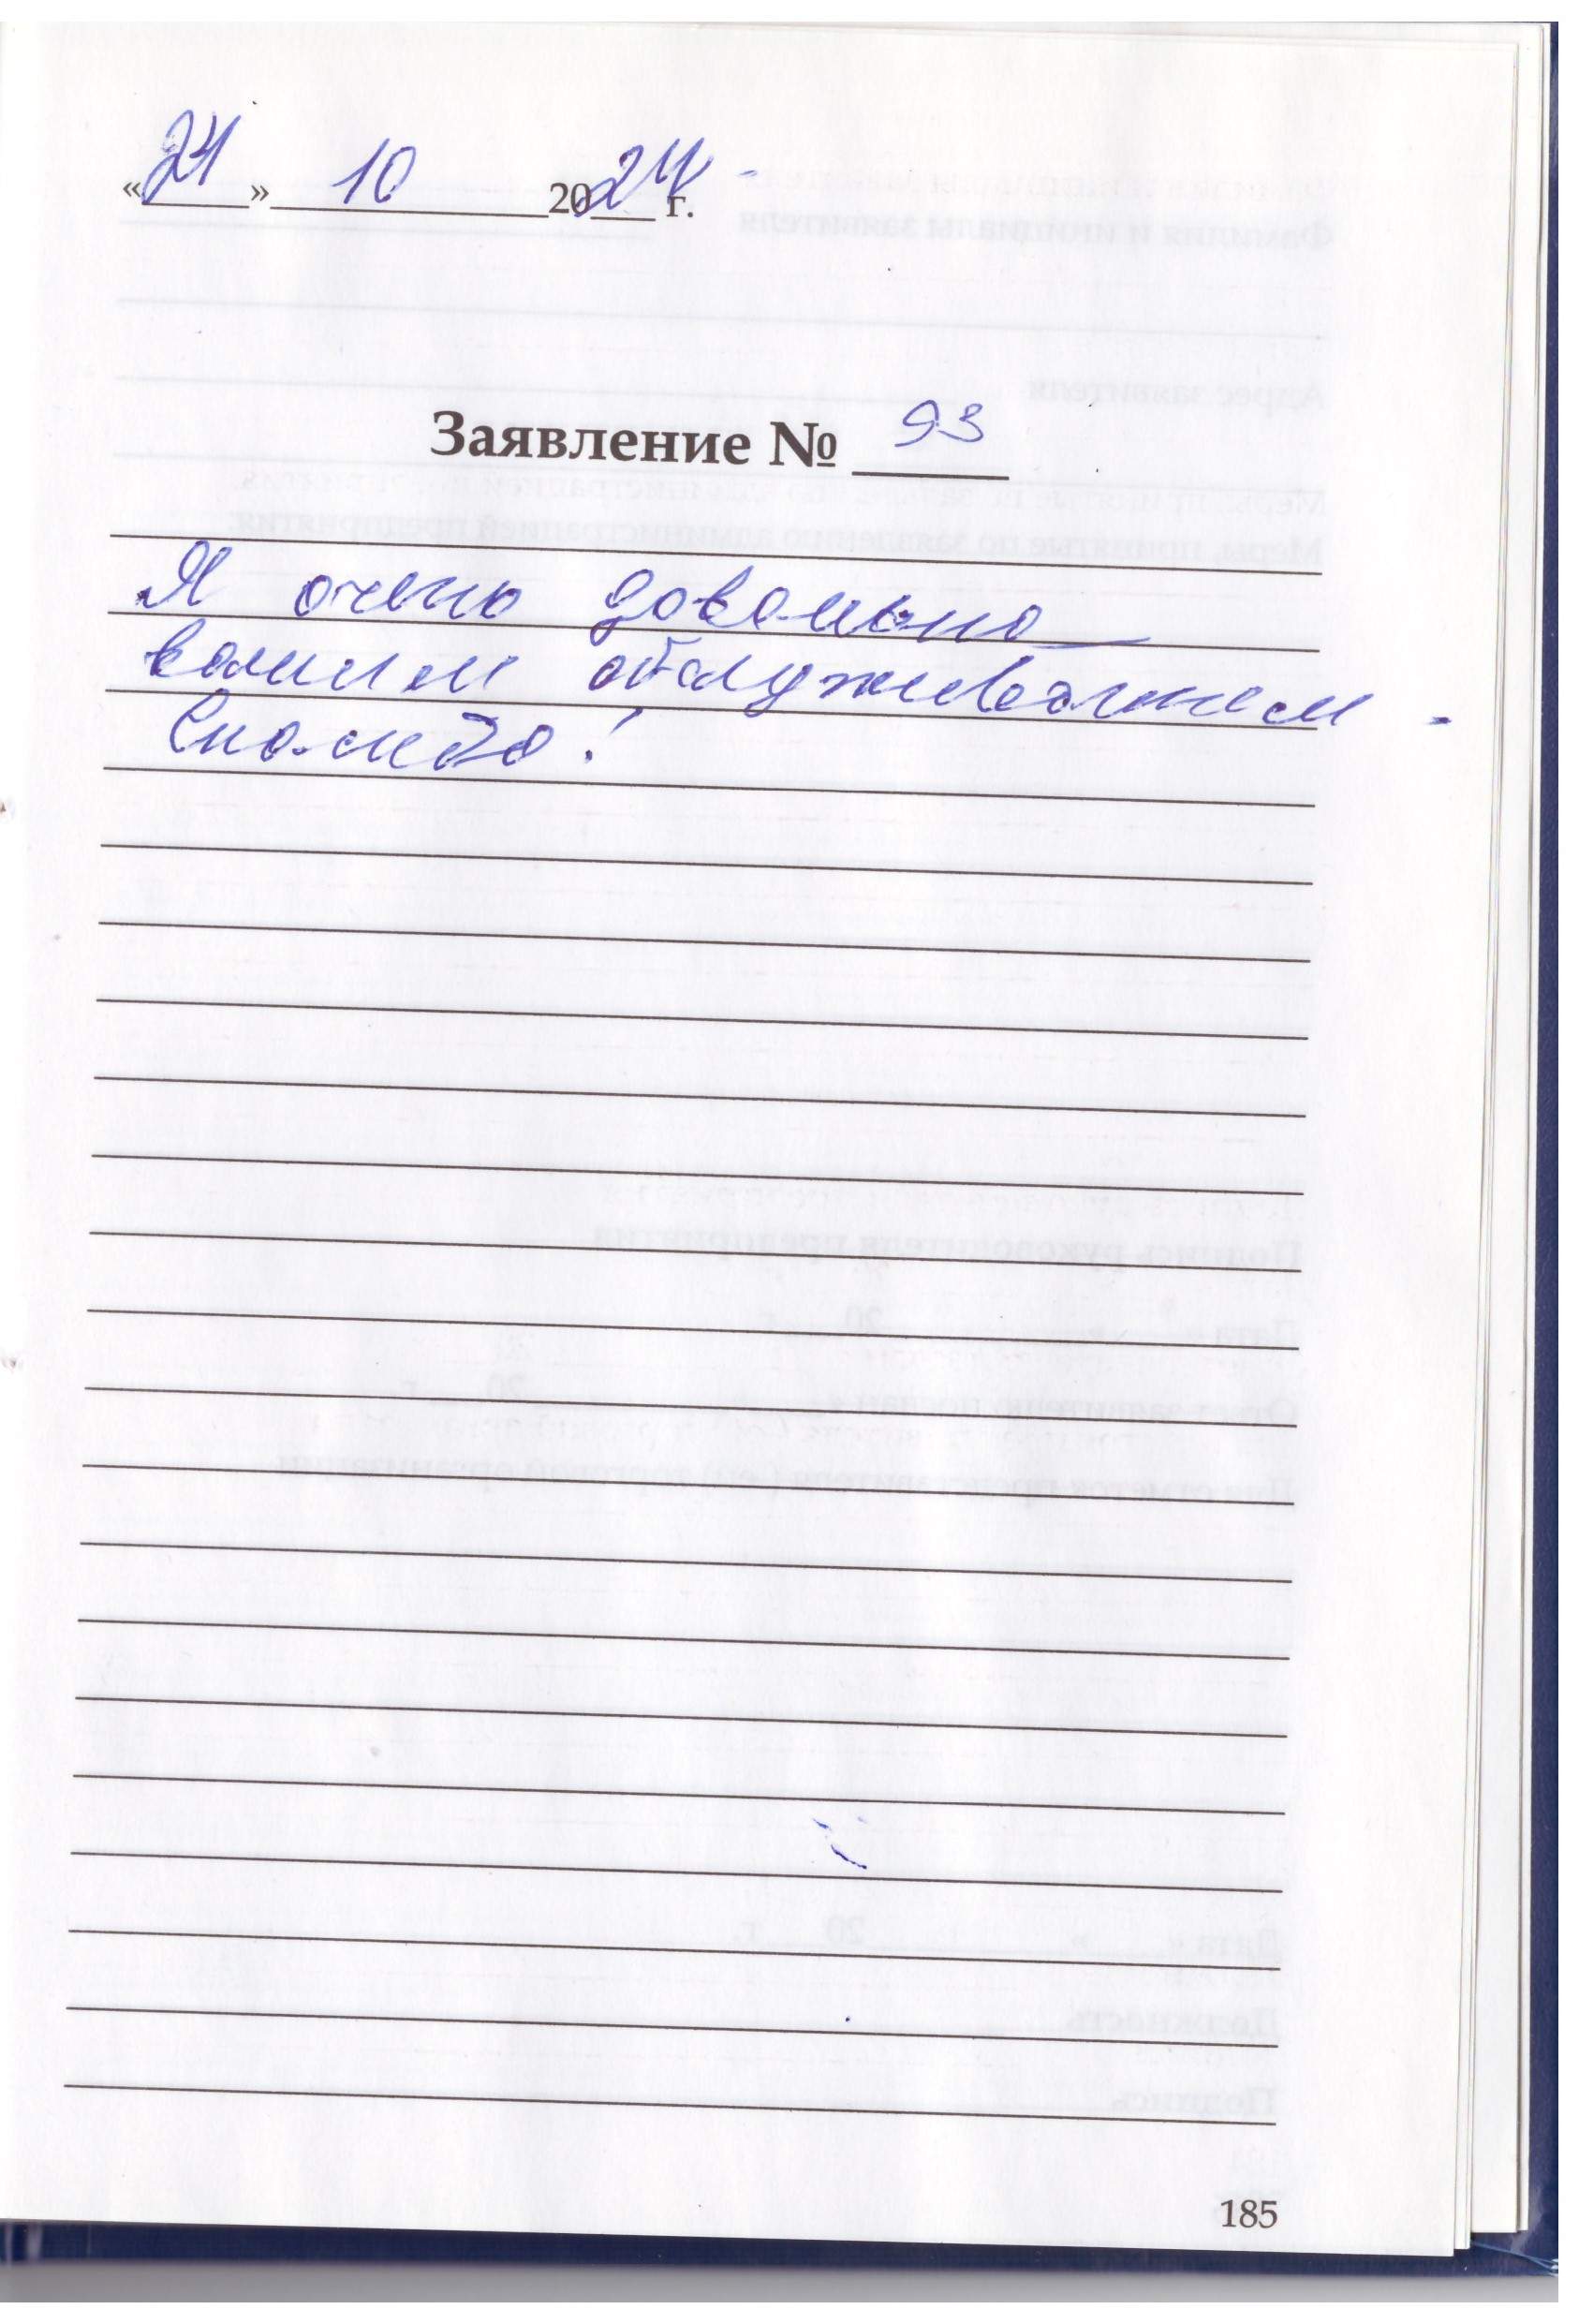 «24» 10 2024 г.
Заявление № 93
Я очень довольна
вашим обслуживанием.
Спасибо!
185